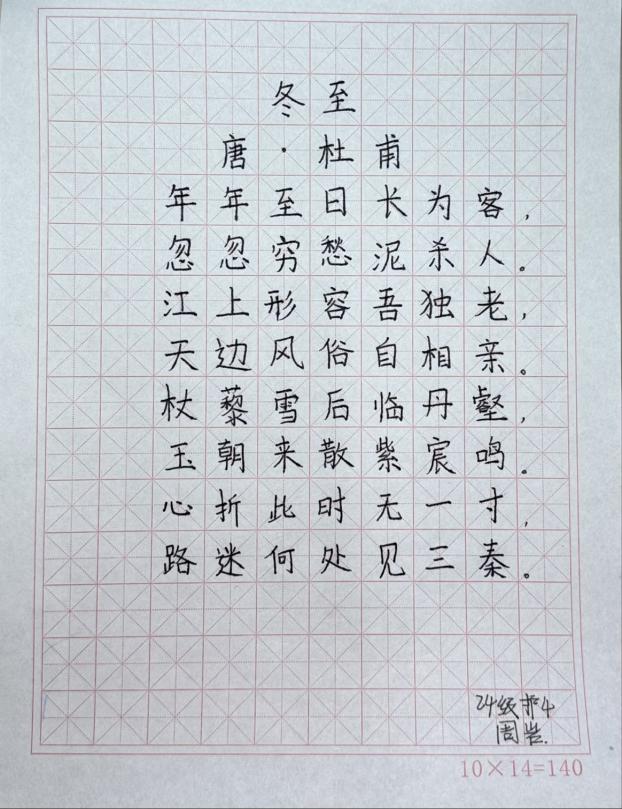 冬至
唐·杜甫
年年至日长为客，
忽忽穷愁泥杀人。
江上形容吾独老，
天边风俗自相亲。
杖藜雪后临丹壑，
玉朝来散紫宸鸣。
心折此时无一寸，
路迷何处见三秦。
24级护4
周岩.
10×14=140